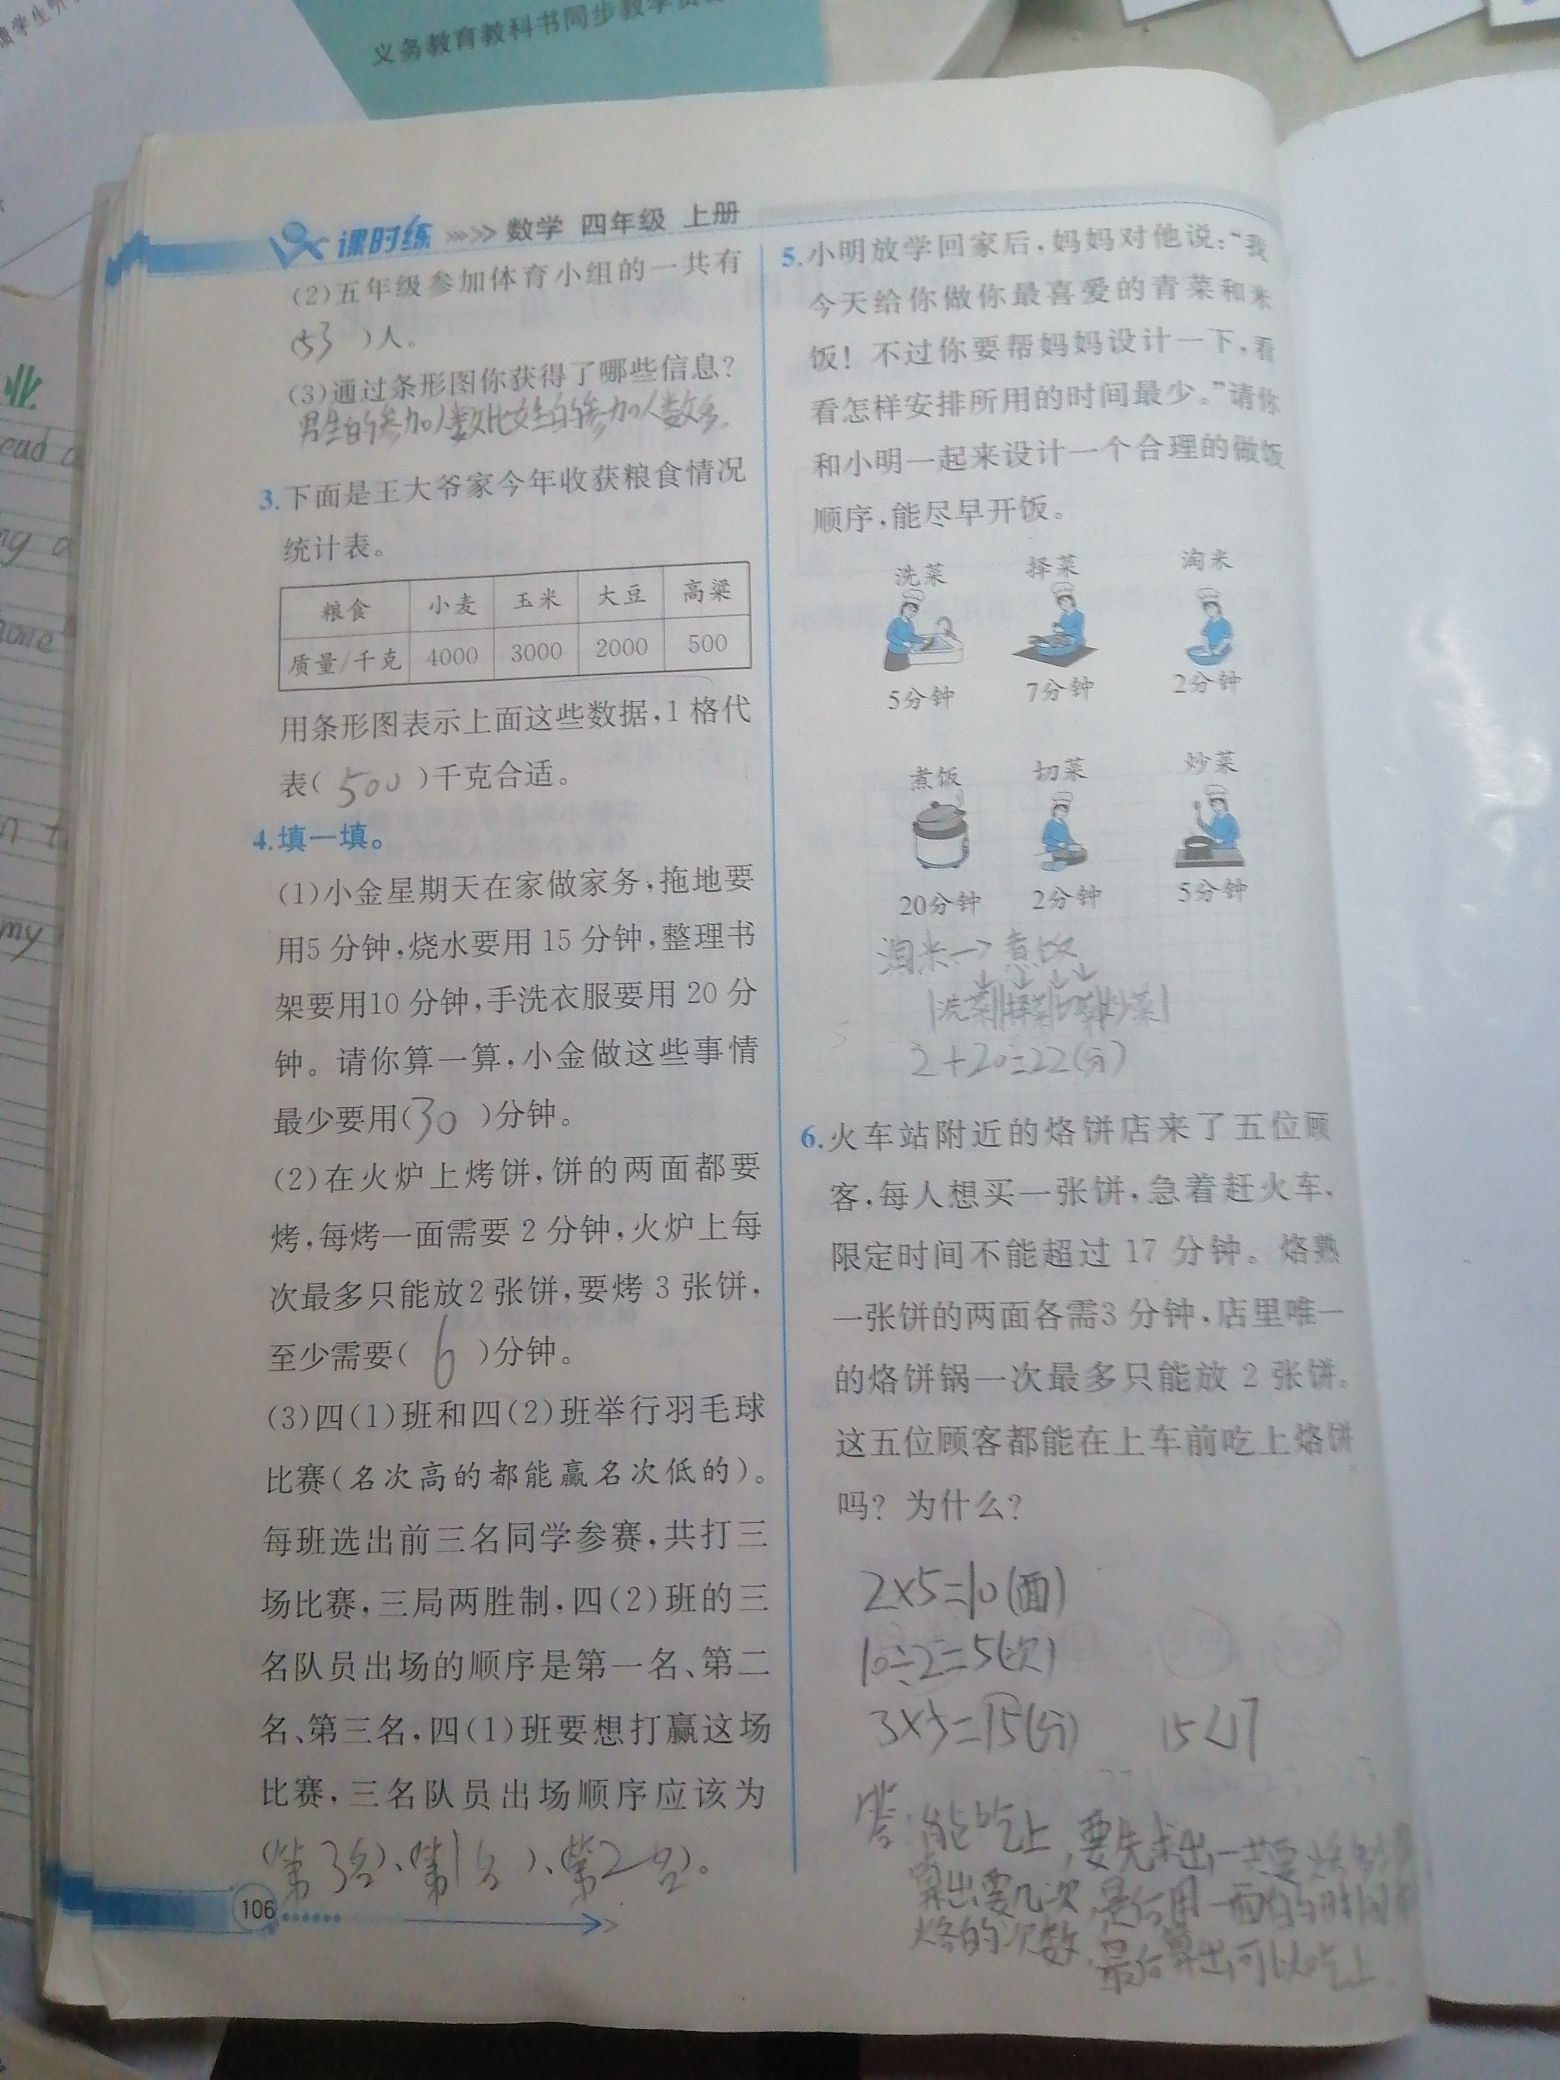 义务教育教科书同步教学资
业
课时练 >>>> 数学 四年级 上册
(2)五年级参加体育小组的一共有
(53)人。
(3)通过条形图你获得了哪些信息?
男生的参加人数比女生的参加人数多.
3.下面是王大爷家今年收获粮食情况
统计表。
粮食 小麦 玉米 大豆 高粱
质量/千克 4000 3000 2000 500
用条形图表示上面这些数据,1格代
表(500)千克合适。
4.填一填。
(1)小金星期天在家做家务,拖地要
用5分钟,烧水要用15分钟,整理书
架要用10分钟,手洗衣服要用20分
钟。请你算一算,小金做这些事情
最少要用(30)分钟。
(2)在火炉上烤饼,饼的两面都要
烤,每烤一面需要2分钟,火炉上每
次最多只能放2张饼,要烤3张饼,
至少需要(6)分钟。
(3)四(1)班和四(2)班举行羽毛球
比赛(名次高的都能赢名次低的)。
每班选出前三名同学参赛,共打三
场比赛,三局两胜制,四(2)班的三
名队员出场的顺序是第一名、第二
名、第三名,四(1)班要想打赢这场
比赛,三名队员出场顺序应该为
(第3名)、(第1名)、(第2名)。
106
5.小明放学回家后,妈妈对他说:“我
今天给你做你最喜爱的青菜和米
饭!不过你要帮妈妈设计一下,看
看怎样安排所用的时间最少。”请你
和小明一起来设计一个合理的做饭
顺序,能尽早开饭。
洗菜 择菜 淘米
5分钟 7分钟 2分钟
煮饭 切菜 炒菜
20分钟 2分钟 5分钟
淘米→煮饭
↓↓↓↓
|洗菜||择菜|切菜|炒菜|
2+20=22(分)
6.火车站附近的烙饼店来了五位顾
客,每人想买一张饼,急着赶火车,
限定时间不能超过17分钟。烙熟
一张饼的两面各需3分钟,店里唯一
的烙饼锅一次最多只能放2张饼。
这五位顾客都能在上车前吃上烙饼
吗?为什么?
2×5=10(面)
10÷2=5(次)
3×5=15(分) 15<17
答:能吃上,要先求出一共要烙多
算出要几次,最后用一面的时间
烙的次数,最后算出可以吃上.